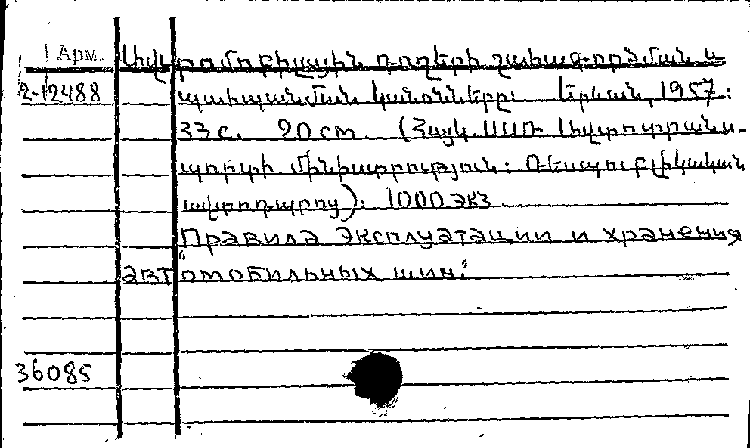 1 Арм. Ավտոմոբիլային դողերի շահագործման և
2-12488 պահպանման կանոնները: Երևան, 1957:
33 с. 20 см. (Հայկ. ՍՍՌ Ավտոտրանս-
պորտի մինիստրություն: Ռեսպուբլիկական
). 1000 экз
"Правила эксплуатации и хранения
автомобильных шин".
36085